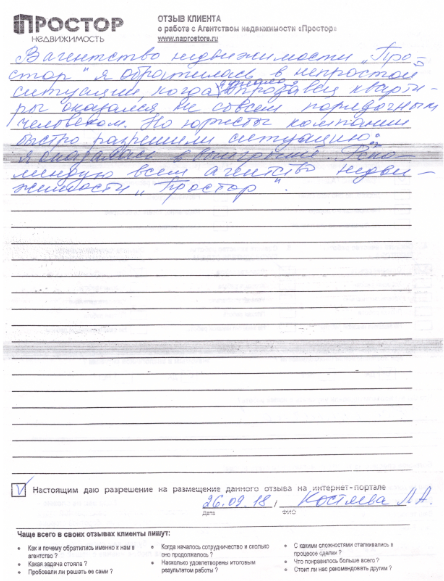 ПРОСТОР
НЕДВИЖИМОСТЬ
ОТЗЫВ КЛИЕНТА
о работе с Агентством недвижимости «Простор»
www.naprostore.ru
В агентство недвижимости „Про-
стор" я обратилась в непростой
ситуации, когда продавец кварти-
ры оказался не совсем порядочным
человеком. Но юристы компании
быстро разрешили ситуацию:
я оказалась в выигрыше. Реко-
мендую всем агентство недви-
жимости „Простор".
V Настоящим даю разрешение на размещение данного отзыва на интернет-портале
26.09.18 / Костяева Л.А.
Дата ФИО
Чаще всего в своих отзывах клиенты пишут:
• Как и почему обратились именно к нам в агентство ?
• Какая задача стояла ?
• Пробовали ли решать ее сами ?
• Когда началось сотрудничество и сколько оно продолжалось ?
• Насколько удовлетворены итоговым результатом работы ?
• С какими сложностями сталкивались в процессе сделки ?
• Что понравилось больше всего ?
• Стоит ли нас рекомендовать другим ?